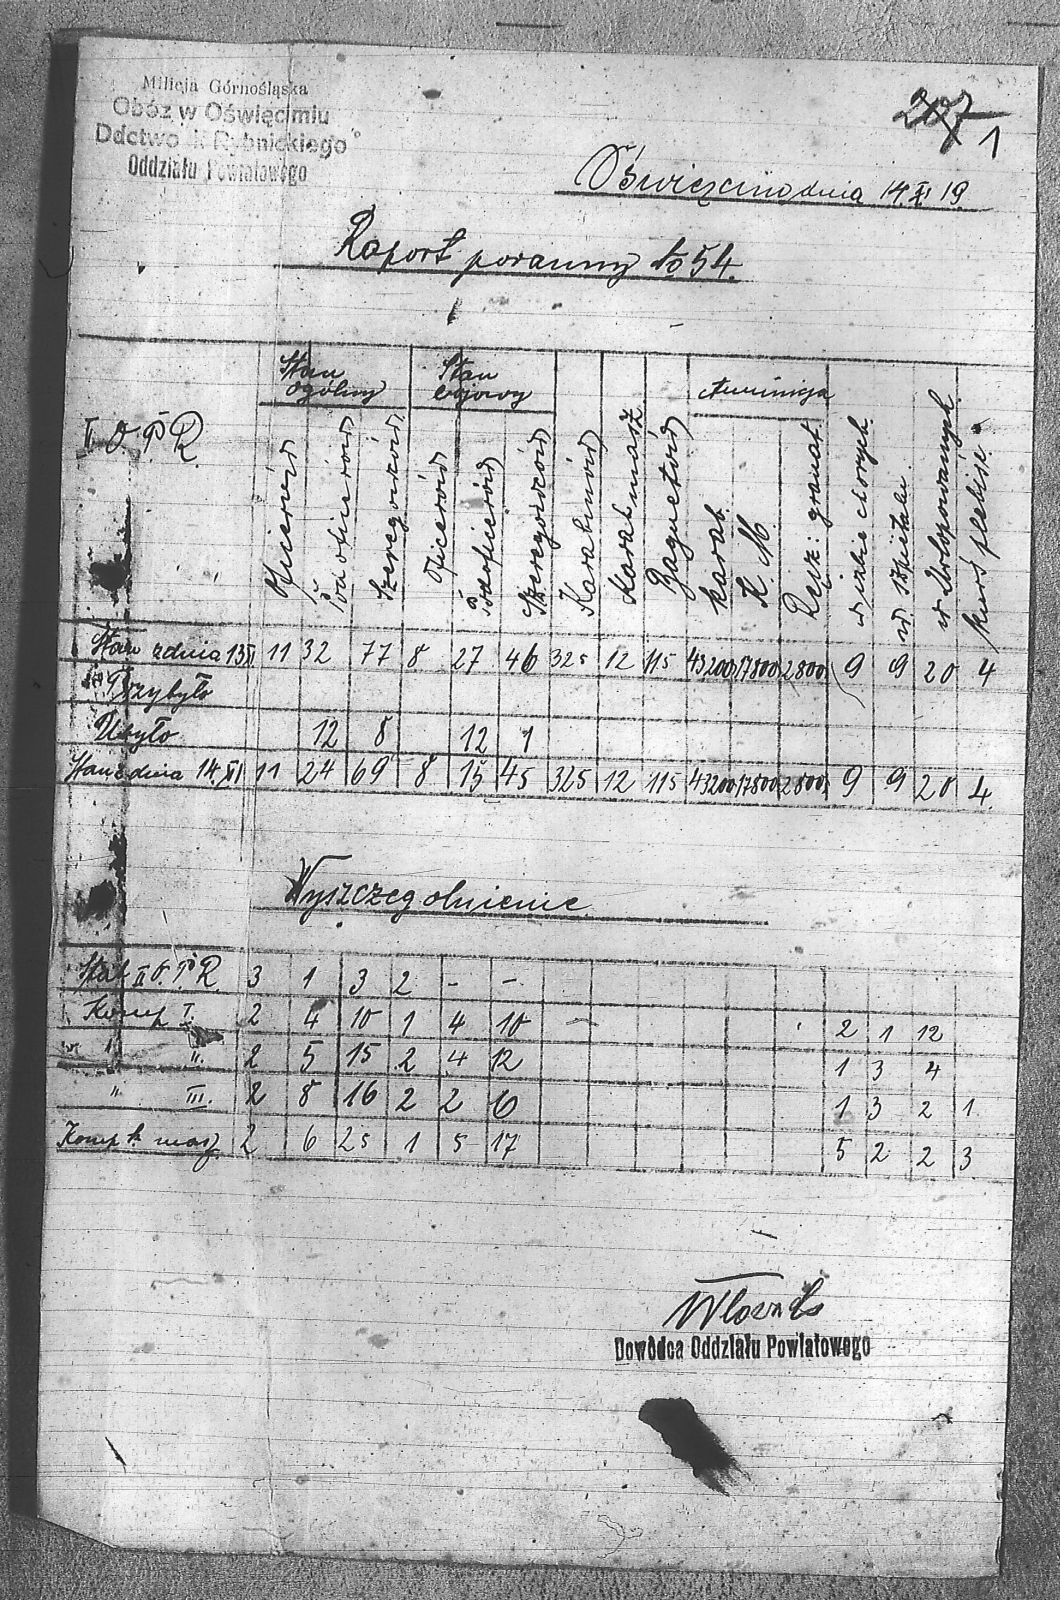 Milicja Górnośląska
Obóz w Oświęcimiu
Ddctwo II Rybnickiego
Oddziału Powiatowego
207
1
Oświęcim dnia 14.XI 19.
Raport poranny No 54.
Stan ogólny
Stan bojowy
Amunicja
O. P R.
Oficerów
Podoficerów
Szeregowców
Oficerów
Podoficerów
Szeregowców
Karabinów
Karab. masz
Bagnetów
karab.
K. M.
Ręcz: granat
w izbie chorych
w szpitalu
w urlopowanych
kurs plebisc.
Stan z dnia 13 XI 11 32 77 8 27 46 325 12 115 43200 17800 2800 9 9 20 4
Przybyło
Ubyło 12 8 12 1
Stan z dnia 14. XI 11 24 69 8 15 45 325 12 115 43200 17800 2800 9 9 20 4.
Wyszczególnienie
Stab II O. P R. 3 1 3 2 - -
Komp I. 2 4 10 1 4 10 2 1 12
" II. 2 5 15 2 4 12 1 3 4
" III. 2 8 16 2 2 6 1 3 2 1
Komp k. masz 2 6 25 1 5 17 5 2 2 3
Dowódca Oddziału Powiatowego